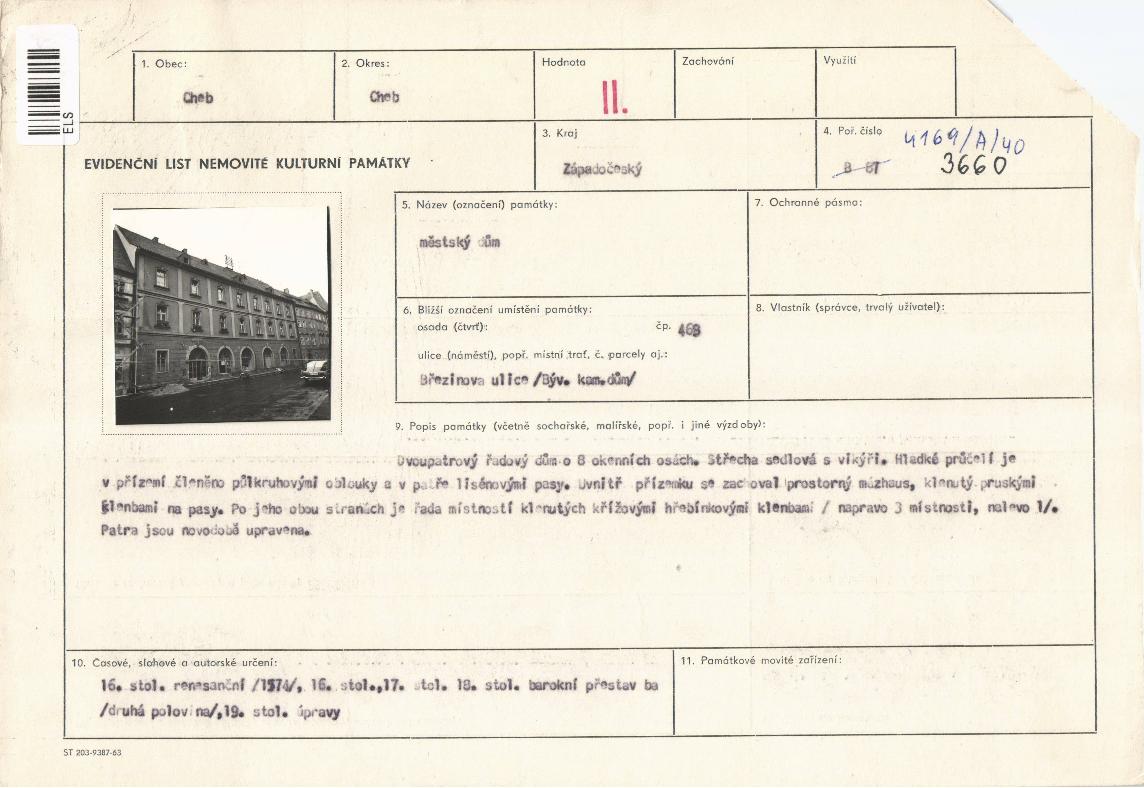 ELS
1. Obec:
Cheb
2. Okres:
Cheb
Hodnota
II.
Zachování
Využití
EVIDENČNÍ LIST NEMOVITÉ KULTURNÍ PAMÁTKY
3. Kraj
Západočeský
4. Poř. číslo
4169/A/40
8 87
3660
5. Název (označení) památky:
městský dům
7. Ochranné pásmo:
6. Bližší označení umístění památky:
osada (čtvrť):
čp. 469
ulice (náměstí), popř. místní trať, č. parcely aj.:
Březinova ulice /Býv. kam.dům/
8. Vlastník (správce, trvalý uživatel):
9. Popis památky (včetně sochařské, malířské, popř. i jiné výzdoby):
Dvoupatrový řadový dům o 8 okenních osách. Střecha sedlová s vikýři. Hladké průčelí je
v přízemí členěno půlkruhovými oblouky a v patře lisénovými pasy. Uvnitř přízemku se zachoval prostorný mázhaus, klenutý pruskými
klenbami na pasy. Po jeho obou stranách je řada místností klenutých křížovými hřebínkovými klenbami / napravo 3 místnosti, nalevo 1/.
Patra jsou novodobě upravena.
10. Časové, slohové a autorské určení:
16. stol. renesanční /1574/, 16. stol.,17. stol. 18. stol. barokní přestav ba
/druhá polovina/,19. stol. úpravy
11. Památkové movité zařízení:
ST 203-9387-63